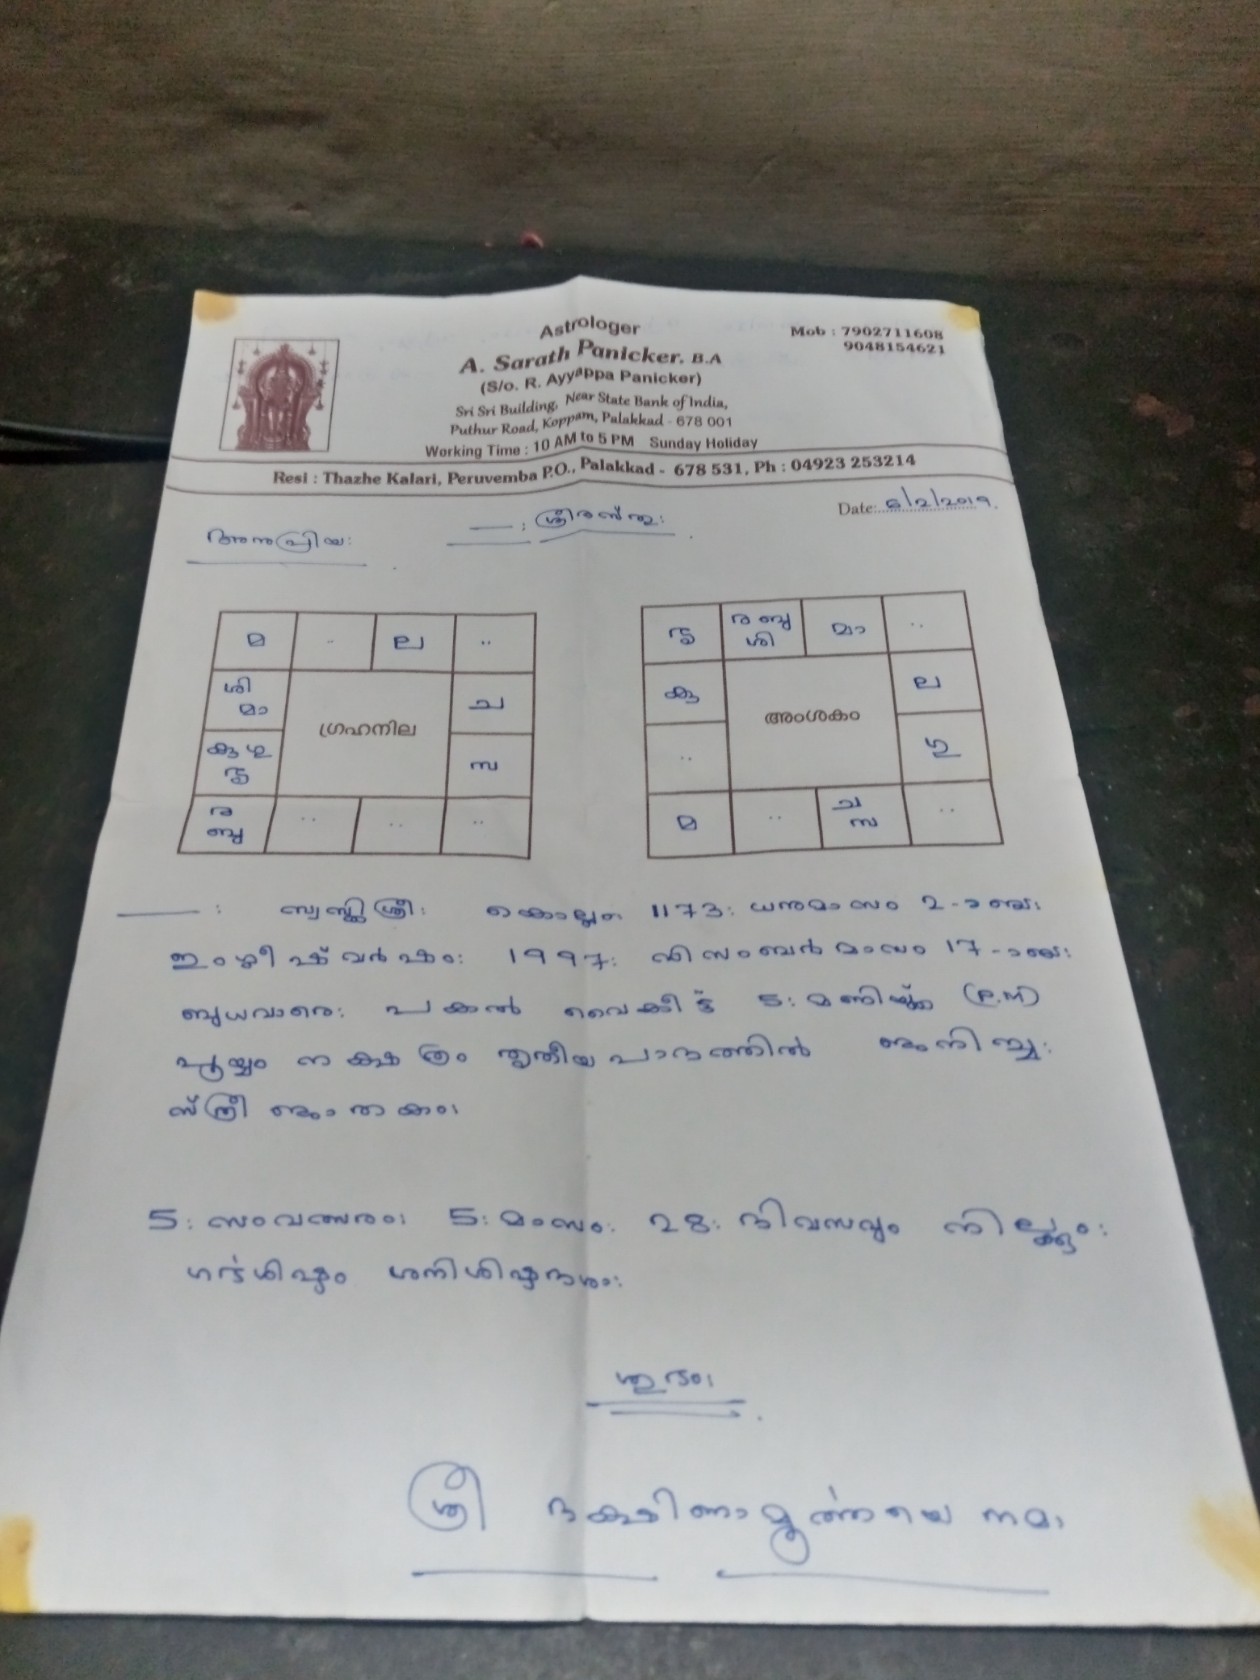 Astrologer
A. Sarath Panicker, B.A
(S/o. R. Ayyappa Panicker)
Sri Sri Building, Near State Bank of India,
Puthur Road, Koppam, Palakkad - 678 001
Working Time : 10 AM to 5 PM Sunday Holiday
Mob : 7902711608
9048154621
Resi : Thazhe Kalari, Peruvemba P.O., Palakkad - 678 531, Ph : 04923 253214
Date: 6/2/2019.
—: ശ്രീരസ്തു:
അനുപ്രിയ:
മ .. ല ..
ശി
മാ
ഗ്രഹനില
ച
കു ഗു
സ
ര
ബു
.. .. ..
ര ബു
ശി
മാ ..
കു
അംശകം
ല
..
ഗു
മ .. ച
സ
..
—: സ്വസ്തിശ്രീ: കൊല്ലം 1173: ധനുമാസം 2-ാംനു:
ഇംഗ്ലീഷ് വർഷം: 1997: ഡിസംബർ മാസം 17-ാംനു:
ബുധവാരെ: പകൽ വൈകീട്ട് 5: മണിയ്ക്ക് (P.M)
പൂയ്യം നക്ഷത്രം തൃതീയ പാദത്തിൽ ജനിച്ച:
സ്ത്രീ ജാതകം:
5: സംവത്സരം: 5: മാസം: 28: ദിവസവും നില്ക്കും:
ഗർഭശിഷ്ടം ശനിശിഷ്ടദശാ:
ശുഭം:
ശ്രീ ദക്ഷിണാമൂർത്തയെ നമ: